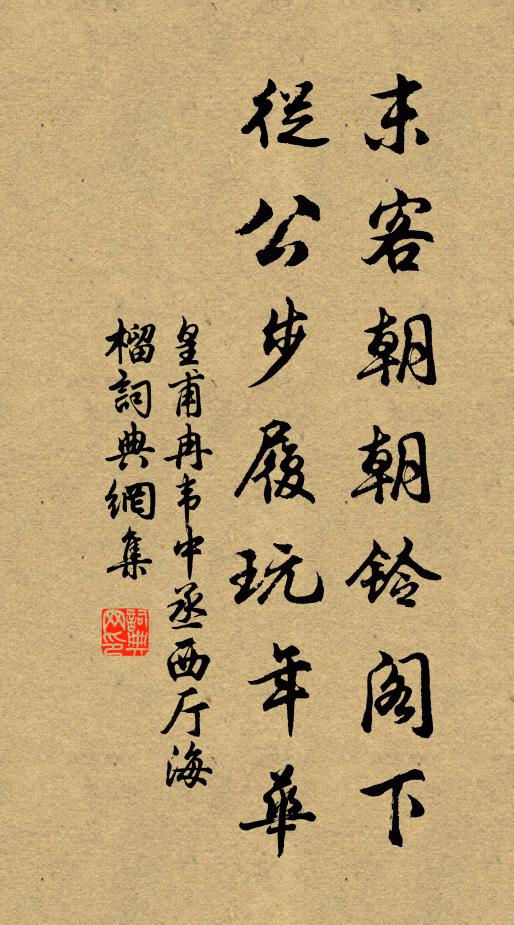 末客朝朝鈴阁下
從公步履玩年華
皇甫冉韦中丞西厅海
榴詞典網集
詞典
网印